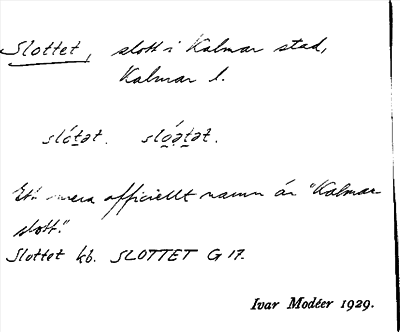 Slottet, slott i Kalmar stad,
Kalmar l.
slótət. slóətət.
Ett mera officiellt namn är "Kalmar
slott."
Slottet kb. SLOTTET G 17.
Ivar Modéer 1929.